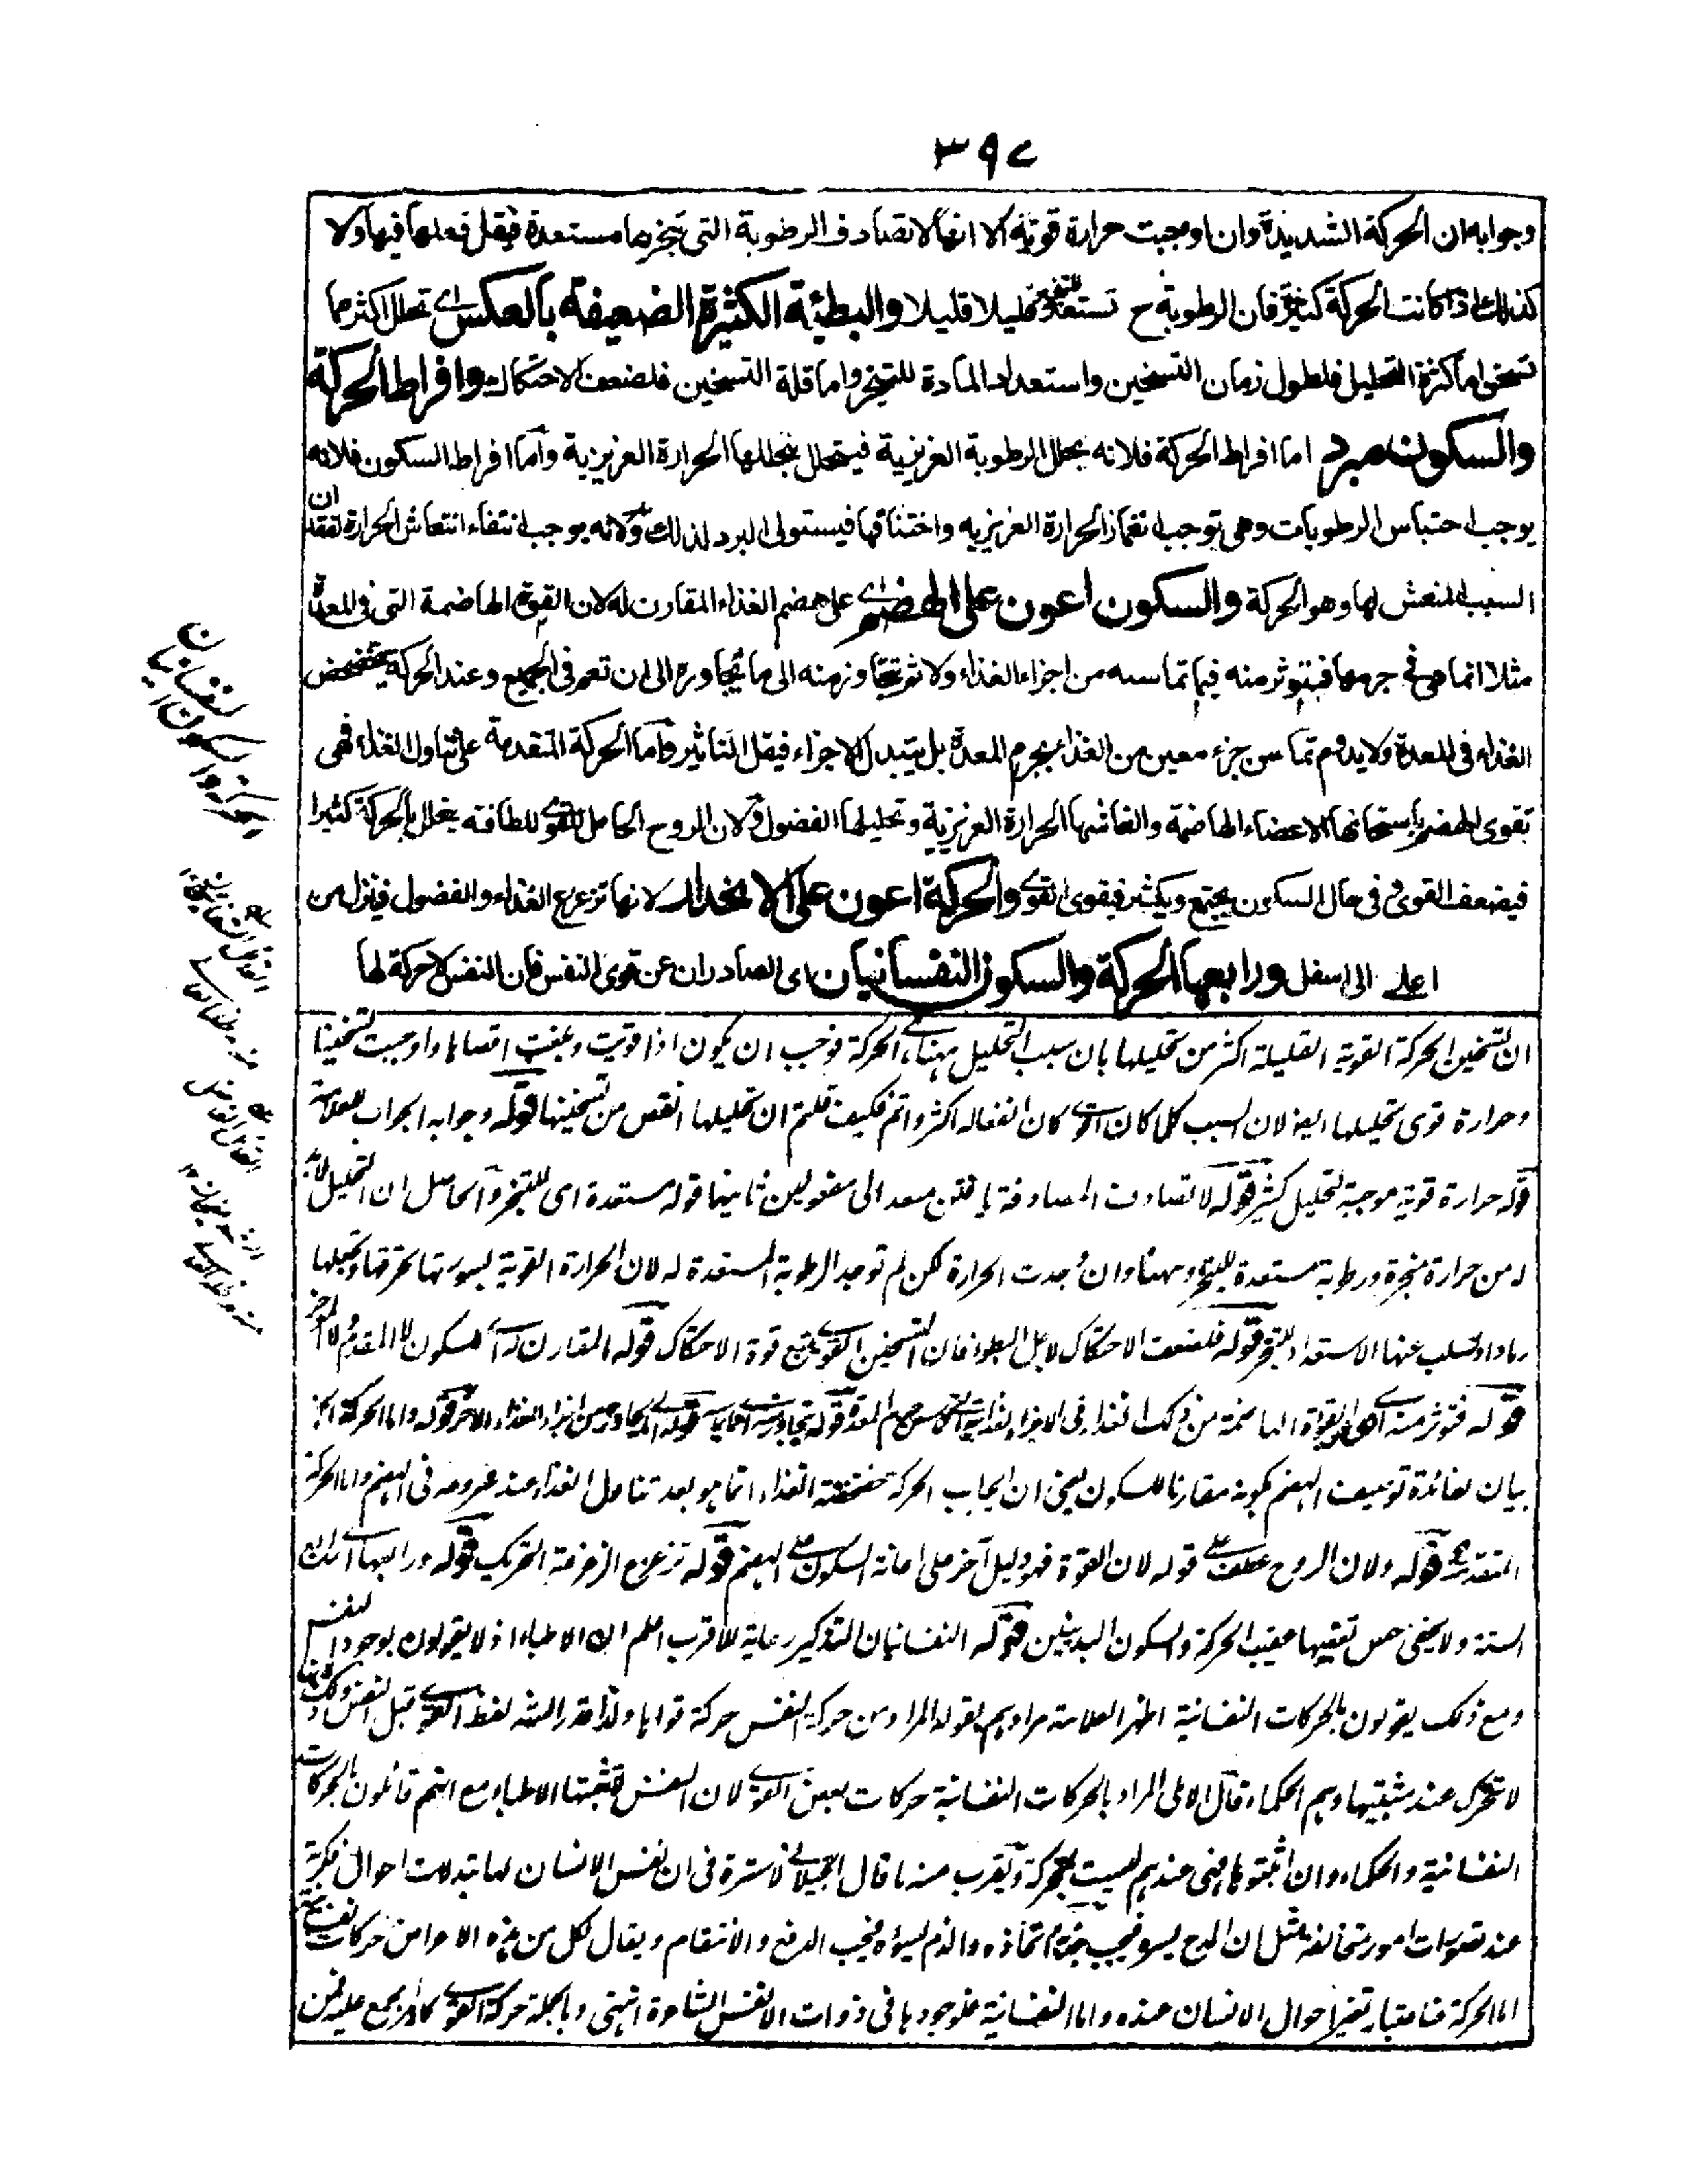 ٣٩٧
وجوابه ان الحركة الشديدة وان اوجبت حرارة قوية الا انها لا تصادف الرطوبة التي تبخرها مستعدة فيقل فعلها فيها ولا
كذلك اذا كانت الحركة كثيرة فان الرطوبة ح تستعد للتبخر قليلا قليلا والبطيئة الكثيرة الضعيفة بالعكس اى تحلل اكثر مما
تسخن اما كثرة التحليل فلطول زمان التسخين واستعداد المادة للتبخر واما قلة التسخين فلضعف الاحتكاك وافراط الحركة
والسكون مبرد اما افراط الحركة فلانه يحلل الرطوبة الغريزية فيتحلل بتحللها الحرارة الغريزية واما افراط السكون فلانه
يوجب احتباس الرطوبات وهى توجب انغماز الحرارة الغريزيه واختناقها فيستولى البرد لذلك ولانه يوجب انتفاء انتعاش الحرارة لفقدان
السبب المنعش لها وهو الحركة والسكون اعون على الهضم اى على هضم الغذاء المقارن له لان القوة الهاضمة التى فى المعدة
مثلا انما هى فى جرمها فتؤثر منه فيما تماسه من اجزاء الغذاء ولا ثم تتجاوز منه الى ما يجاوره الى ان تعم فى الجميع وعند الحركة يتخضخض
الغذاء فى المعدة ولا يدوم تماس جزء معين من الغذاء بجرم المعدة بل يتبدل الاجزاء فيقل التاثير واما الحركة المتقدمة على تناول الغذاء فهى
تقوى الهضم باسخانها الاعضاء الهاضمة والغاشها الحرارة الغريزية وتحليلها الفضول ولان الروح الحامل للقوى للطافته يتحلل بالحركة كثيرا
فيضعف القوى وفى حال السكون يجتمع ويكثر فيقوى القوى والحركة اعون على الانحدار لانها تزعزع الغذاء والفضول فينزل من
اعلى الى اسفل ورابعها الحركة والسكون النفسانيان اى الصادران عن قوى النفس فان النفس لا حركة لها
ان تسخين الحركة القوية القليلة اكثر من تحليلها بان سبب التحليل ههنا الحركة فوجب ان يكون اذا قويت وبلغت اقصاها واوجبت تسخينا
وحرارة قوى تحليلها ايضا لان السبب كلما كان اقوى كان انفعاله اكثر واتم فكيف قلتم ان تحليلها انقص من تسخينها قوله وجوابه الجواب للعلامة
قوله حرارة قوية موجبة لتحليل كثير قوله لا تصادف المصادفة يافتن متعد الى مفعولين ثانيهما قوله مستعدة اى للتبخر والحاصل ان التحليل لابد
له من حرارة مبخرة ورطوبة مستعدة للتبخر وههنا وان وجدت الحرارة لكن لم توجد الرطوبة المستعدة له لان الحرارة القوية بسورتها تحرقها وتجعلها
رمادا وتسلب عنها الاستعداد للتبخر قوله فلضعف الاحتكاك لاجل البطوء فان التسخين القوى يتبع قوة الاحتكاك قوله المقارن له اى للسكون لا المقدم ولا المؤخر
قوله فتؤثر منه اى القوة الهاضمة من ذلك قوله واما الحركة الخ
بيان لفائدة توصيف الهضم بكونه مقارنا للسكون يعنى ان ايجاب الحركة خضخضة الغذاء انما هو بعد تناول الغذاء عند شروعه فى الهضم واما الحركة
المتقدمة قوله ولان الروح عطف على قوله لان القوة فهو دليل آخر على اعانة السكون على الهضم قوله تزعزع الزعزعة التحريك قوله ورابعها اى الاسباب
الستة ولا يخفى حسن تعقيبها عقيب الحركة والسكون البدنيين قوله النفسانيان التذكير رعاية للاقرب اعلم ان الاطباء اذ لا يقولون بوجود النفس
ومع ذلك يقولون بالحركات النفسانية اظهر العلامة مرادهم بقوله المراد من حركة النفس حركة قواها ولذا قدر الشه لفظ القوى قبل النفس
لا تتحرك عند مثبتيها وهم الحكماء قال الآملى المراد بالحركات النفسانية حركات بعض القوى لان النفس لم يثبتها الاطباء مع انهم قائلون بالحركات
النفسانية والحكماء وان اثبتوها فهى عندهم ليست بمتحركة ويقرب منه ما قال الجيلانى لا سترة فى ان نفس الانسان لها تبدلات احوال فكرية
عند تصورات امور متخالفة مثل ان المدح يسره فيجب اتخاذه والذم يسوءه فيجب الدفع والانتقام ويقال لكل من هذه الاعراض حركات نفسانية
اما الحركة فباعتبار تغير احوال الانسان عنده واما النفسانية فلوجودها فى ذوات الانفس الشاعرة انتهى وبالجملة حركة القوى كامر مجمع عليه فمن
الحركة والسكون النفسانيان